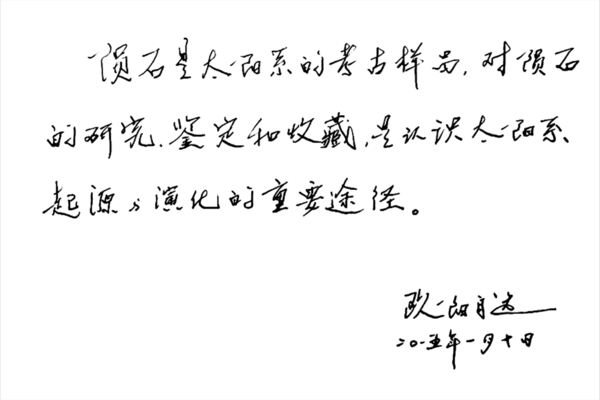 陨石是太阳系的考古样品,对陨石
的研究、鉴定和收藏,是认识太阳系
起源与演化的重要途径。
欧阳自远
二〇一五年一月十日